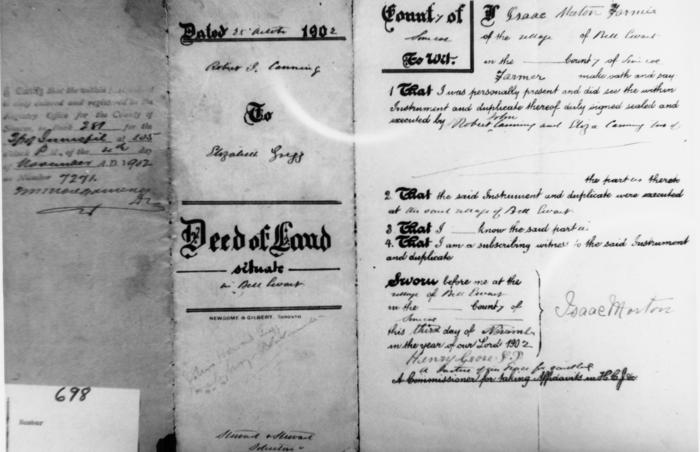 I Certify that the within
is duly entered and registered in the
Registry Office for the County of
Book 281 for the
Tp of Innisfil at 1.55
o'clock P. M. of the day
of November A.D. 1902
as Number 7291.
698
Number
Dated 25 October 1902
Robert J. Canning
To
Elizabeth Grigg
Deed of Land
situate
in Bell Ewart
NEWSOME & GILBERT, TORONTO
Stewart & Stewart
Solicitors
County of
Simcoe
To Wit:
I Isaac Morton Farmer
of the village of Bell Ewart
in the County of Simcoe
Farmer make oath and say
1 That I was personally present and did see the within
Instrument and duplicate thereof duly signed sealed and
executed by Robert John Canning and Eliza Canning two of
the parties thereto
2 That the said Instrument and duplicate were executed
at the said village of Bell Ewart
3 That I know the said parties
4. That I am a subscribing witness to the said Instrument
and duplicate
Sworn before me at the
village of Bell Ewart
in the County of
Simcoe
this third day of Novemb
in the year of our Lord 1902
Isaac Morton
Henry Grose J.P.
A Justice of the Peace for
A Commissioner for taking Affidavits in H.C.J. &c